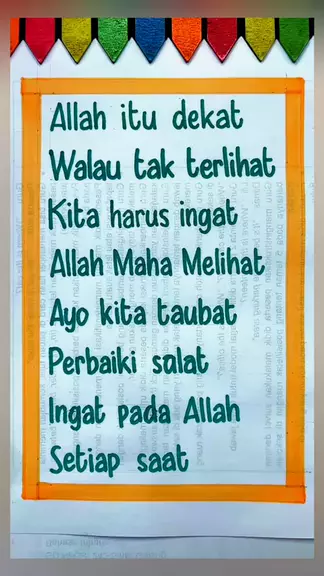 Allah itu dekat
Walau tak terlihat
Kita harus ingat
Allah Maha Melihat
Ayo kita taubat
Perbaiki salat
Ingat pada Allah
Setiap saat